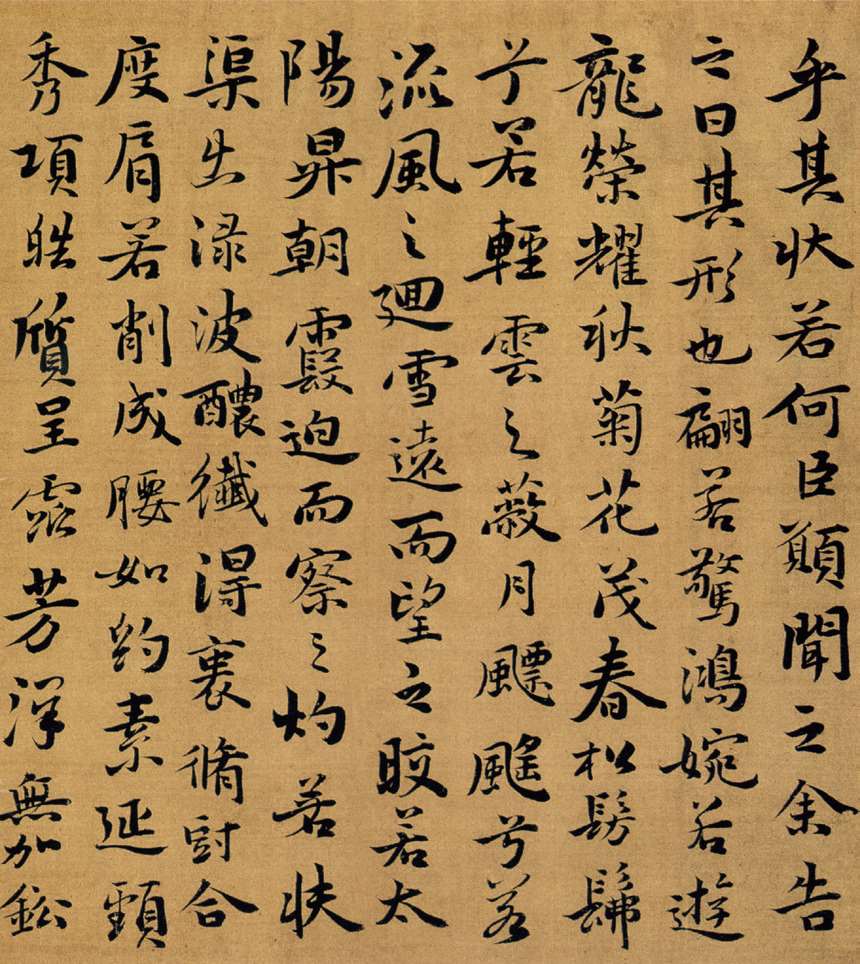 乎其状若何臣願聞之余告
之曰其形也翩若驚鴻婉若遊
龍榮耀秋菊花茂春松髣髴
兮若輕雲之蔽月飃颻兮若
流風之廻雪遠而望之皎若太
陽昇朝霞迫而察之灼若芙
渠出渌波醲纖得衷脩短合
度肩若削成腰如約素延頸
秀項皓質呈露芳澤無加鈆